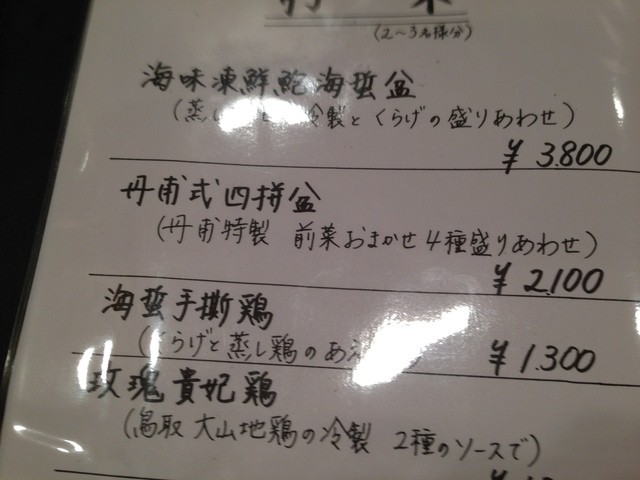 前菜
(2〜3名様分)
海味凍鮮鮑海蜇盆
(蒸し 冷製とくらげの盛りあわせ)
¥3.800
丹甫式四拼盆
(丹甫特製 前菜おまかせ4種盛りあわせ)
¥2.100
海蜇手撕鶏
(くらげと蒸し鶏のあえ
¥1.300
玫瑰貴妃鶏
(鳥取 大山地鶏の冷製 2種のソースで)